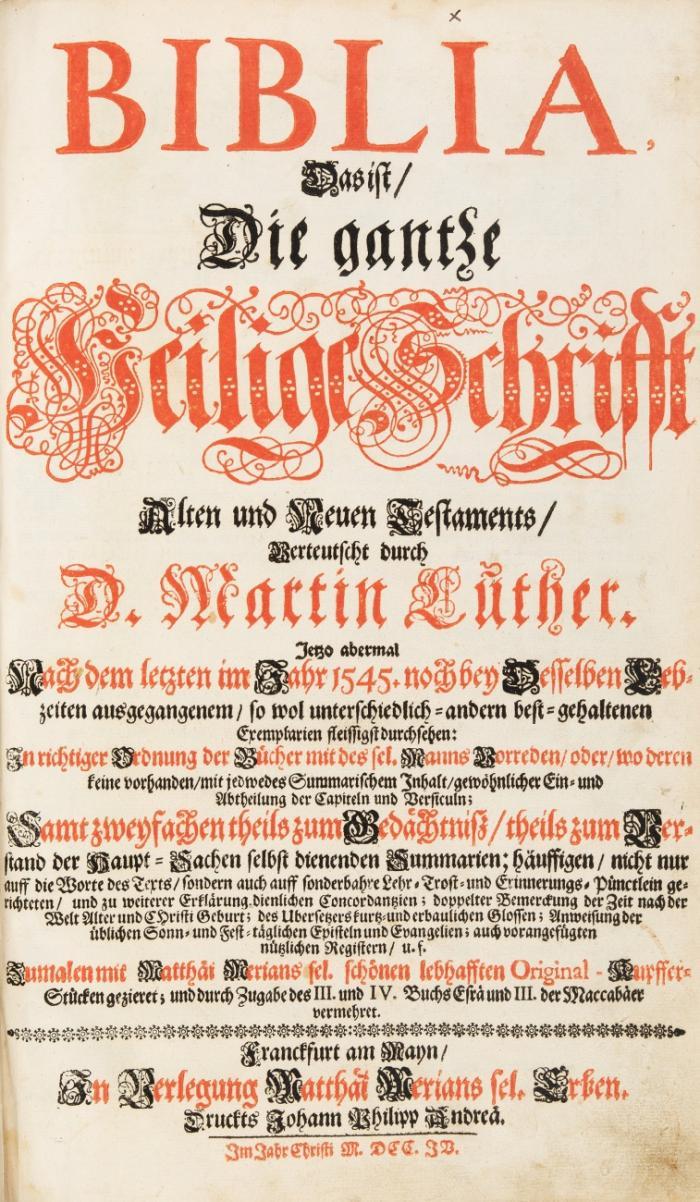 BIBLIA,
Das ist/
Die gantze
Heilige Schrifft
Alten und Neuen Testaments/
Verteutscht durch
D. Martin Luther.
Jetzo abermal
Nach dem letzten im Jahr 1545. noch bey Desselben Leb-
zeiten ausgegangenem/ so wol unterschiedlich-andern best-gehaltenen
Exemplarien fleissigst durchsehen:
In richtiger Ordnung der Bücher mit des sel. Manns Vorreden/ oder/ wo deren
keine vorhanden/ mit jedwedes Summarischem Inhalt/ gewöhnlicher Ein- und
Abtheilung der Capiteln und Versiculn;
Samt zweyfachen theils zum Gedächtniß/ theils zum Ver-
stand der Haupt-Sachen selbst dienenden Summarien; häuffigen/ nicht nur
auff die Worte des Texts/ sondern auch auff sonderbahre Lehr-Trost- und Erinnerungs-Pünctlein ge-
richteten/ und zu weiterer Erklärung dienlichen Concordantzien; doppelter Bemerckung der Zeit nach der
Welt Alter und Christi Geburt; des Ubersetzers kurtz- und erbaulichen Glossen; Anweisung der
üblichen Sonn- und Fest-täglichen Episteln und Evangelien; auch vorangefügten
nützlichen Registern/ u. s.
Zumalen mit Matthäi Merians sel. schönen lebhafften Original-Kupffer-
Stücken gezieret; und durch Zugabe des III. und IV. Buchs Esrä und III. der Maccabäer
vermehret.
Franckfurt am Mayn/
In Verlegung Matthäi Merians sel. Erben.
Druckts Johann Philipp Andreä.
Im Jahr Christi M. DCC. IV.